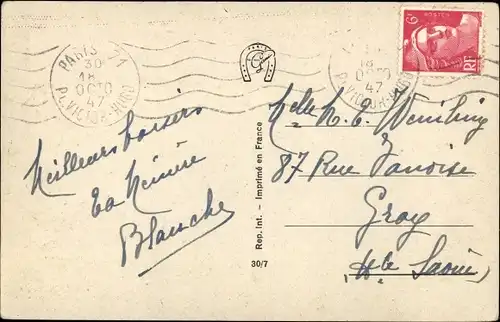 PARIS 71
18 30
OCTO
47
PL. VICTOR-HUGO
18
OCTO
47
PL. VICTOR-HUGO
6F
POSTES
RF
Meilleurs baisers
Ta
Blanche
Rep. Int. - Imprimé en France
30/7
Melle
87 Rue
Gray
(Hte Saône)